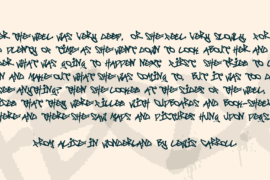 or the well was very deep, or she fell very slowly, for
plenty of time as she went down to look about her and
what was going to happen next. First, she tried to l
n and make out what she was coming to, but it was too d
see anything: then she looked at the sides of the well,
iced that they were filled with cupboards and book-shel
here and there she saw maps and pictures hung upon pegs.
from Alice in Wonderland by Lewis Carroll